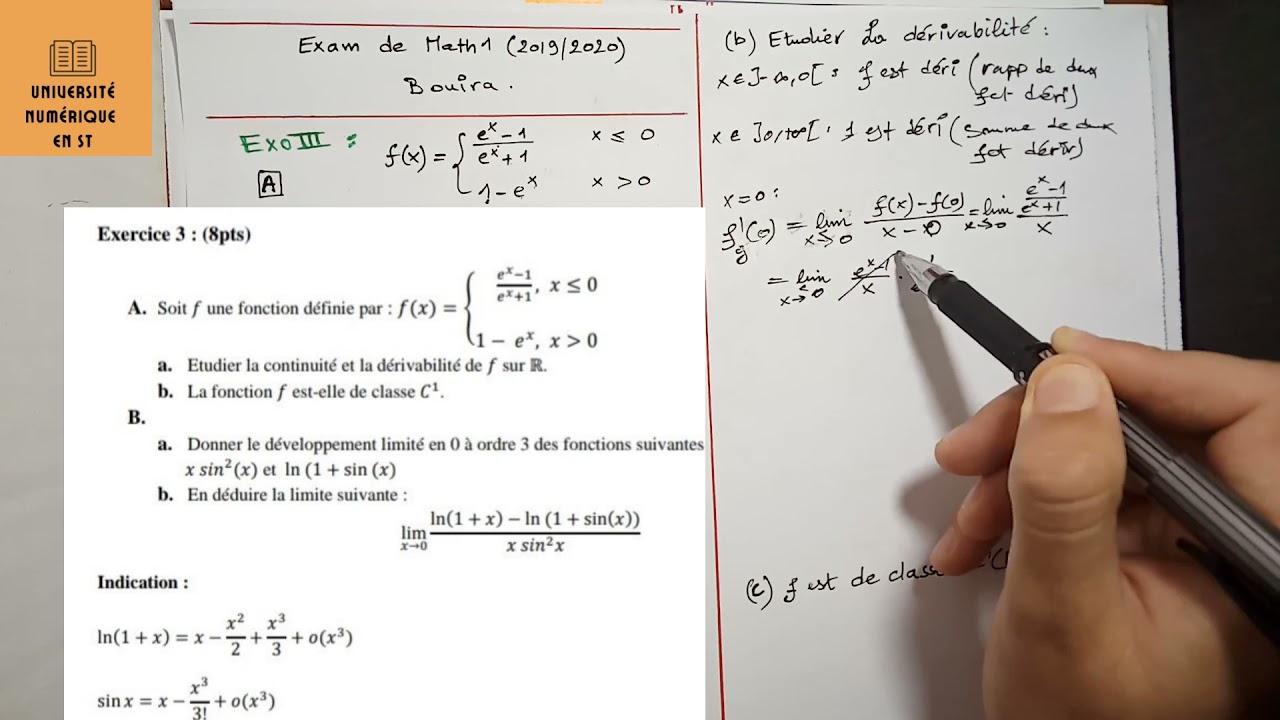 UNIVERSITÉ
NUMÉRIQUE
EN ST
Exam de Math 1 (2019/2020)
Bouira.
Exo III :
A
f(x) = { (e^x - 1)/(e^x + 1)   x ≤ 0
1 - e^x   x > 0
Exercice 3 : (8pts)
A. Soit f une fonction définie par : f(x) = { (e^x−1)/(e^x+1), x ≤ 0
1 − e^x, x > 0
a. Etudier la continuité et la dérivabilité de f sur ℝ.
b. La fonction f est-elle de classe C^1.
B.
a. Donner le développement limité en 0 à ordre 3 des fonctions suivantes
x sin²(x) et ln (1 + sin (x)
b. En déduire la limite suivante :
lim x→0 (ln(1 + x) − ln (1 + sin(x)))/(x sin²x)
Indication :
ln(1 + x) = x − x²/2 + x³/3 + o(x³)
sin x = x − x³/3! + o(x³)
(b) Etudier la dérivabilité :
x ∈ ]-∞,0[ : f est déri (rapp de deux
fct déri)
x ∈ ]0,+∞[ : f est déri (somme de deux
fct dériv)
x = 0 :
f'g(0) = lim x→0 (f(x) - f(0))/(x - 0) = lim x→0 ((e^x - 1)/(e^x + 1))/x
= lim x→0 (e^x - 1)/x ·
(c) f est de class